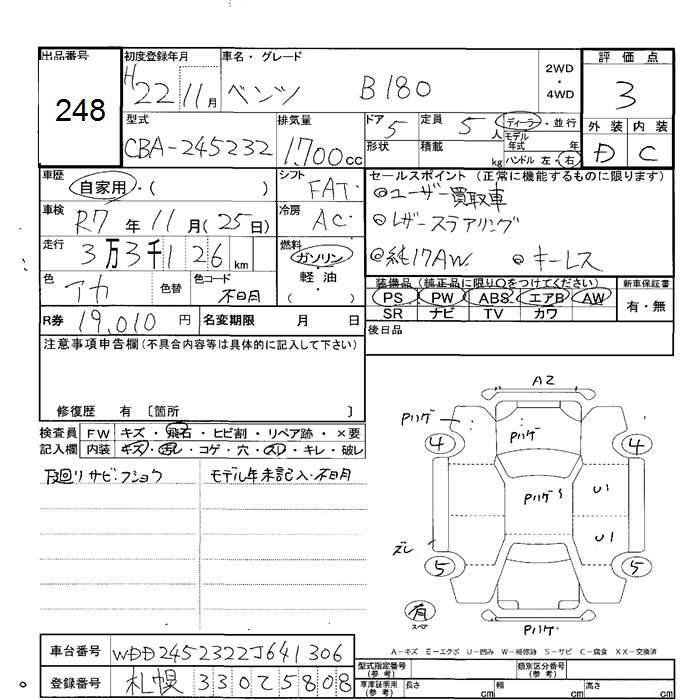 出品番号 初度登録年月 車名・グレード 評価点
248 H22 11月 ベンツ B180 2WD・4WD 3
型式 排気量 ドア 5 定員 5人 ディーラー・並行 外装 内装
CBA-245232 1,700cc 形状 積載 kg モデル年式 年 D C
ハンドル 左・右
車歴 シフト セールスポイント (正常に機能するものに限ります)
自家用・( ) FAT ◎ユーザー買取車
車検 R7年11月(25日) 冷房 AC ◎レザーステアリング
走行 3万3千126km 燃料 ガソリン・軽油・( ) ◎純17AW ◎キーレス
色 アカ 色替 色コード 不明 装備品 (純正品に限り○をつけてください) 新車保証書
PS PW ABS エアB AW 有・無
SR ナビ TV カワ
R券 19,010円 名変期限 月 日 後日品
注意事項申告欄(不具合内容等は具体的に記入して下さい)
修復歴 有 〔箇所 〕
検査員 FW キズ・飛石・ヒビ割・リペア跡・×要
記入欄 内装 キズ・汚レ・コゲ・穴・スレ・キレ・破レ
下回りサビ・フショク モデル年未記入・不明
A2
Pハゲ Pハゲ
4 4
Pハゲ U1
ズレ U1
5 5
有
スペア Pハゲ
A-キズ E-エクボ U-凹み W-補修跡 S-サビ C-腐食 XX-交換済
車台番号 WDD2452322J641306
登録番号 札幌330て5808
型式指定番号(参考) 類別区分番号(参考)
車庫証明用(参考) 長さ cm 幅 cm 高さ cm